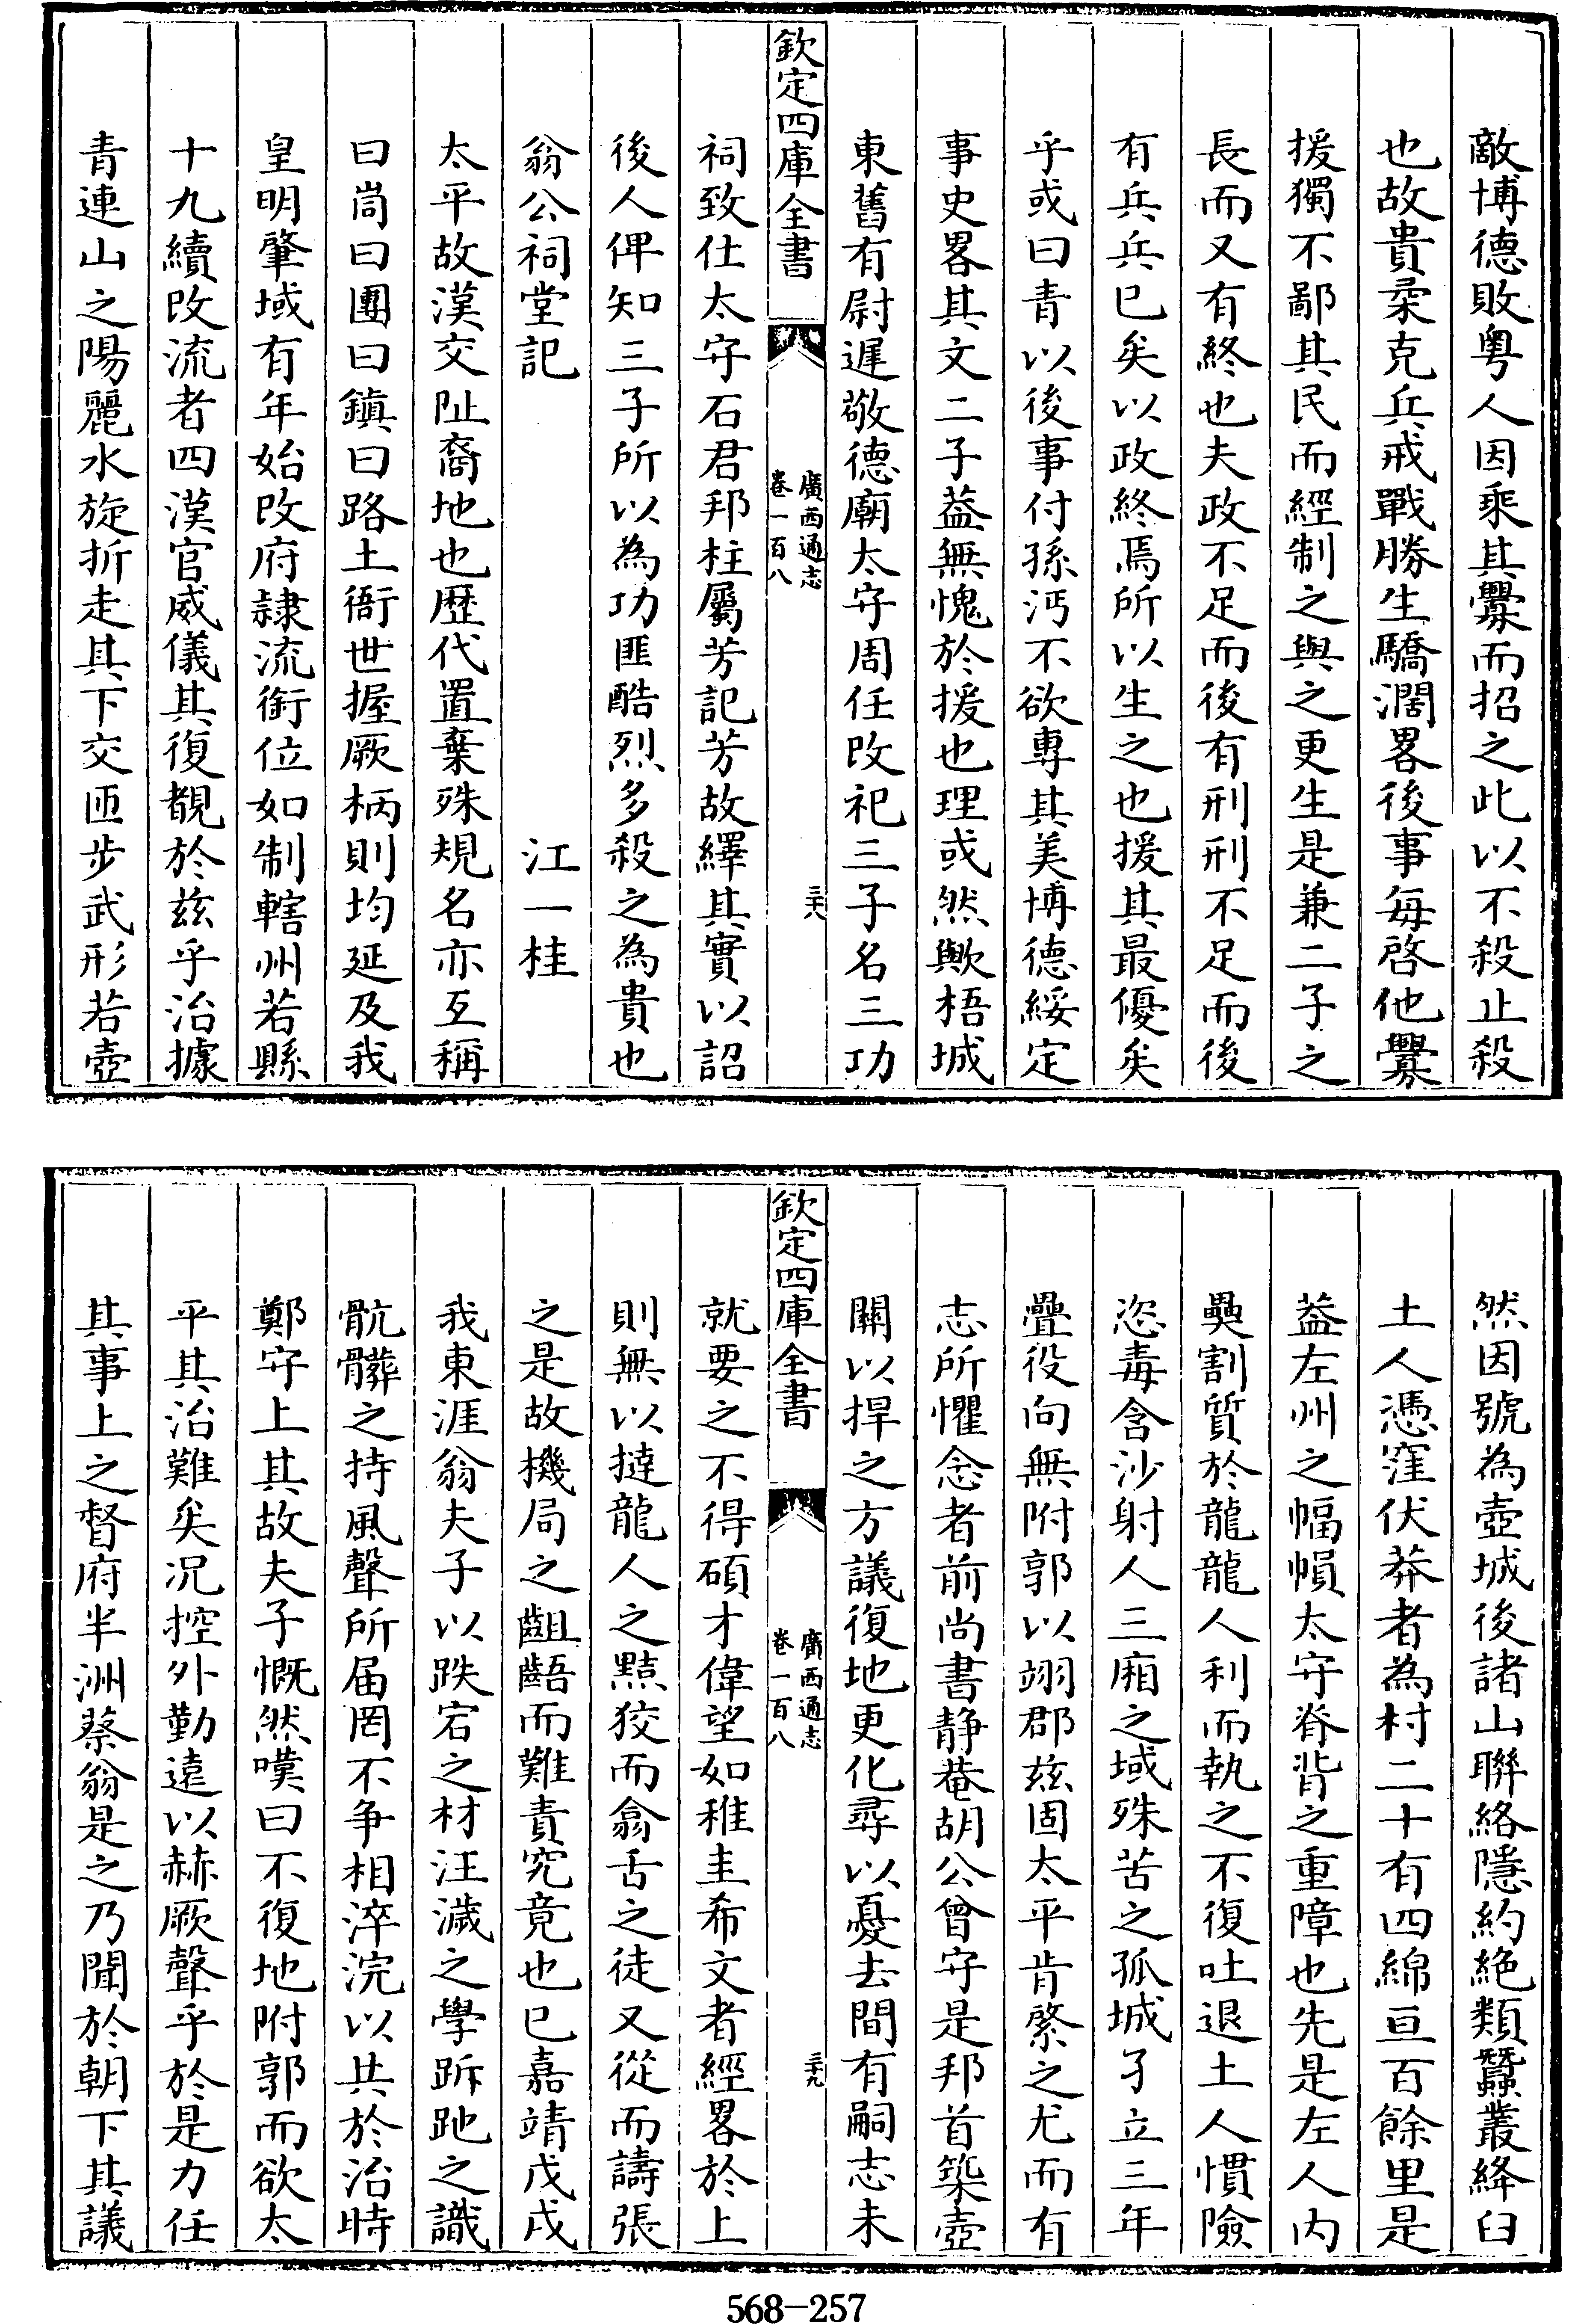 敵博德敗粤人因乘其釁而招之此以不殺止殺
也故貴柔克兵戒戰勝生驕濶畧後事每啓他釁
援獨不鄙其民而經制之與之更生是兼二子之
長而又有終也夫政不足而後有刑刑不足而後
有兵兵已矣以政終焉所以生之也援其最優矣
乎或曰青以後事付孫沔不欲專其美博德綏定
事史畧其文二子葢無愧於援也理或然歟梧城
東舊有尉遲敬德廟太守周任改祀三子名三功
欽定四庫全書
廣西通志
卷一百八
三十八
祠致仕太守石君邦柱屬芳記芳故繹其實以詔
後人俾知三子所以為功匪酷烈多殺之為貴也
翁公祠堂記 江一桂
太平故漢交阯裔地也歴代置棄殊規名亦互稱
曰峝曰團曰鎮曰路土衙世握厥柄則均延及我
皇明肇域有年始改府隸流銜位如制轄州若縣
十九續改流者四漢官威儀其復覩於兹乎治據
青連山之陽麗水旋折走其下交匝步武形若壺
然因號為壺城後諸山聯絡隱約絶類蠶叢絳臼
土人憑窪伏莽者為村二十有四綿亘百餘里是
葢左州之幅幀太守脊背之重障也先是左人内
㸑割質於龍龍人利而執之不復吐退土人慣險
恣毒含沙射人三廂之域殊苦之孤城孑立三年
疊役向無附郭以翊郡兹固太平肯綮之尤而有
志所懼念者前尚書静菴胡公曾守是邦首築壺
關以捍之方議復地更化尋以憂去間有嗣志未
欽定四庫全書
廣西通志
卷一百八
三十九
就要之不得碩才偉望如稚圭希文者經畧於上
則無以撻龍人之黠狡而翕舌之徒又從而譸張
之是故機局之齟齬而難責究竟也已嘉靖戊戌
我東涯翁夫子以跌宕之材汪濊之學跅跎之識
骯髒之持風聲所届罔不争相淬浣以共於治時
鄭守上其故夫子慨然嘆曰不復地附郭而欲太
平其治難矣况控外勤遠以赫厥聲乎於是力任
其事上之督府半洲蔡翁是之乃聞於朝下其議
568-257